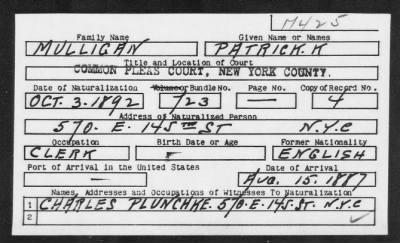 M425
Family Name Given Name or Names
MULLIGAN PATRICK.K
Title and Location of Court
COMMON PLEAS COURT, NEW YORK COUNTY.
Date of Naturalization Volume or Bundle No. Page No. Copy of Record No.
OCT. 3. 1892 723 — 4
Address of Naturalized Person
570. E. 145TH ST N.Y.C
Occupation Birth Date or Age Former Nationality
CLERK — ENGLISH
Port of Arrival in the United States Date of Arrival
— AUG. 15. 1887
Names, Addresses and Occupations of Witnesses To Naturalization
1 CHARLES PLUNCHKE. 570. E. 145. ST. N.Y.C
2